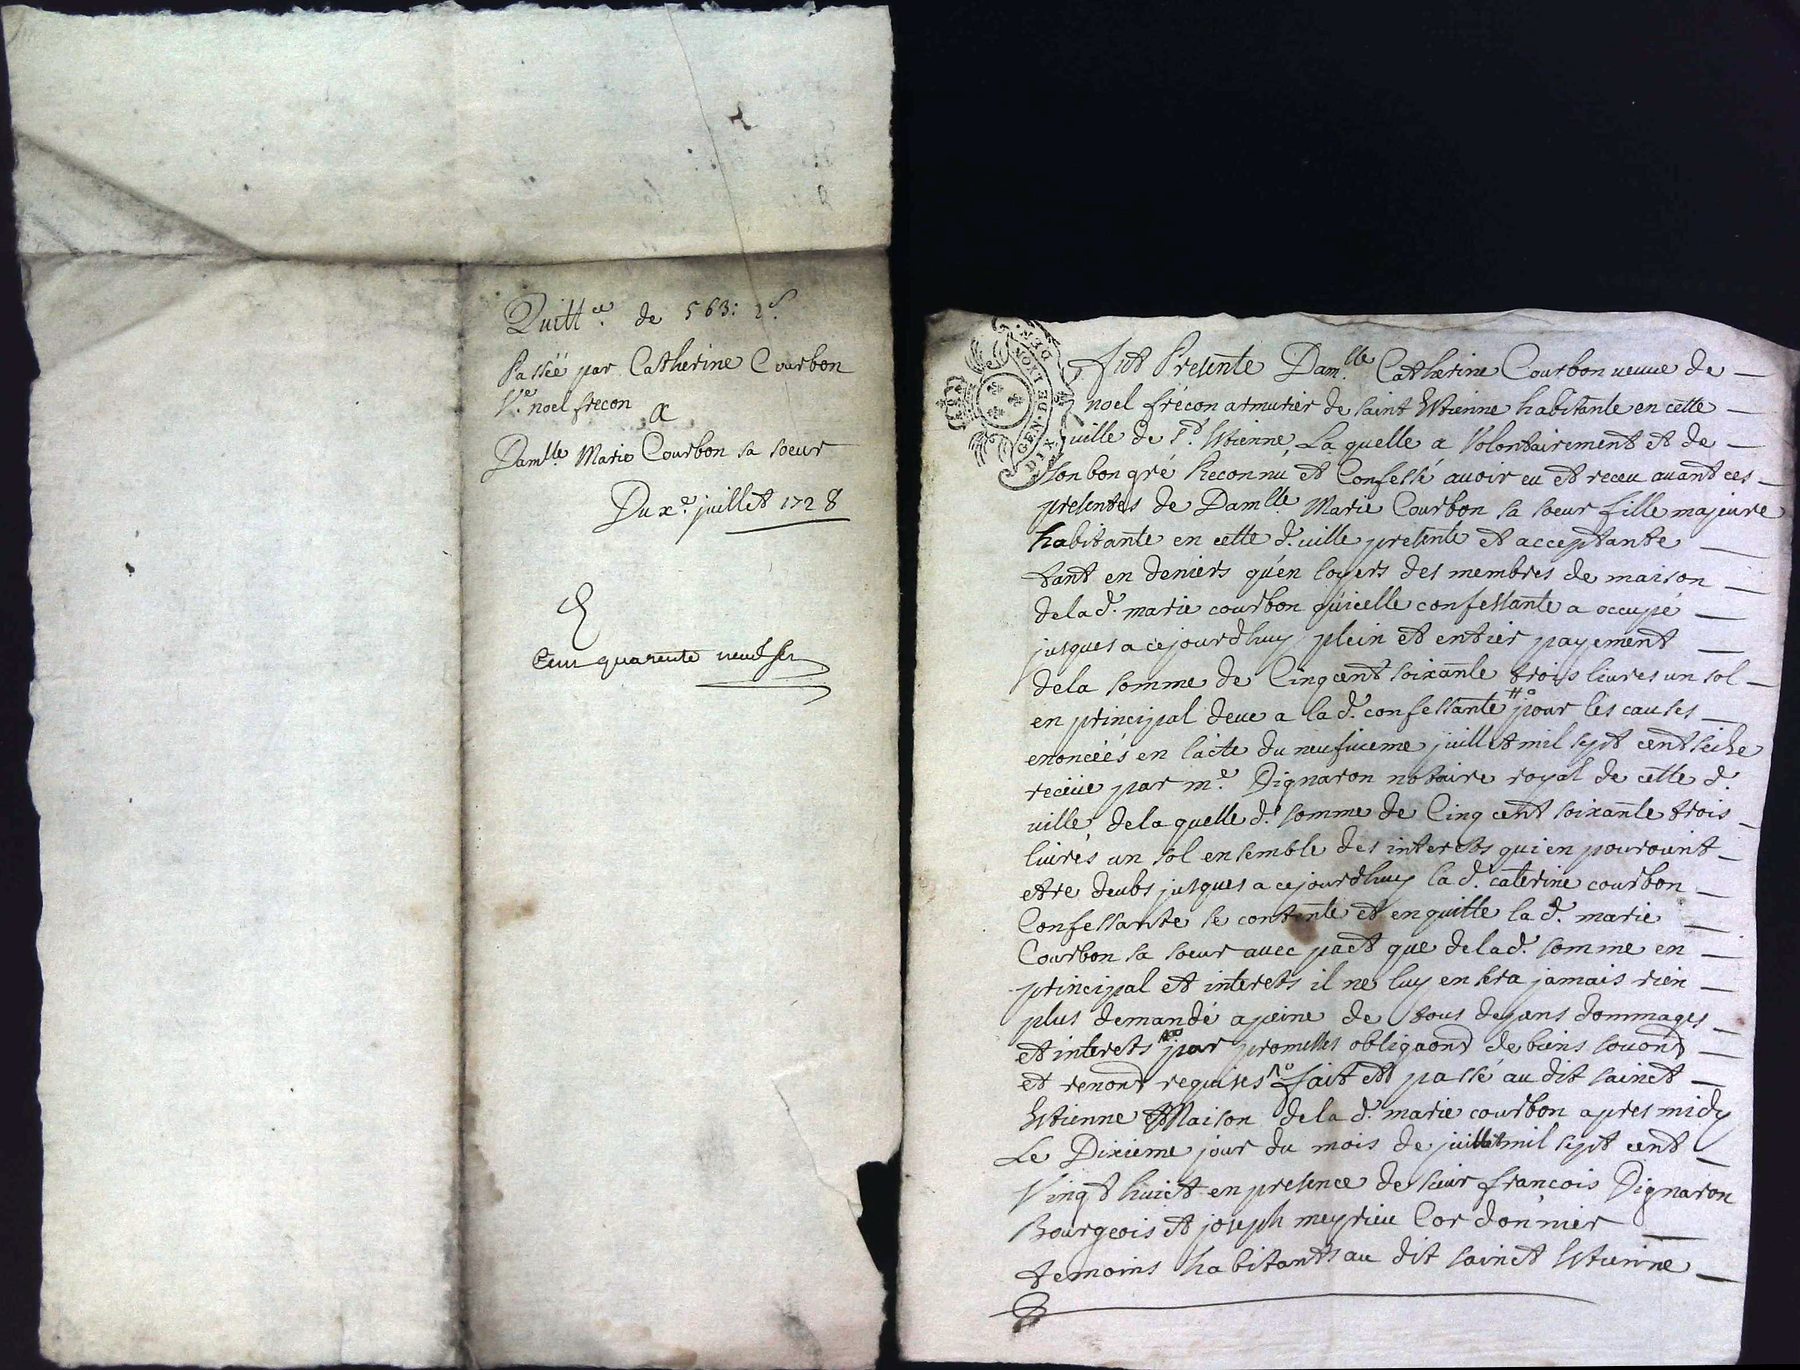 Quitt.ce de 563: 1s.
Passée par Catherine Courbon
V.e noel frecon
a
Damlle. Marie Courbon sa soeur
Du xe. juillet 1728
Cent quarente neuf
GEN. DE LYON
DIX DEN.
fut Presente Dam.lle Catherine Courbon veuve de
noel frécon armurier de saint Estienne habitante en cette
ville de St. Estienne, La quelle a Volontairement et de
son bon gré Reconnu et Confessé avoir eu et receu avant ces
presentes de Damlle. Marie Courbon sa soeur fille majeure
habitante en cette d. ville presente et acceptante
tant en deniers qu'en loyers des membres de maison
de la d. marie courbon qu'icelle confessante a occupé
jusques a ce jourdhuy plein et entier payement
de la somme de Cinq cent soixante trois livres un sol
en principal deue a la d. confessante pour les causes
enoncéés en lacte du neufvieme juillet mil sept cent seize
recëue par me. Dignaron notaire royal de cette d.
ville, de la quelle d. somme de Cinq cent soixante trois
livres un sol ensemble des interests qui en pouroint
etre deubs jusques a ce jourdhuy la d. caterine courbon
Confessante se contente et en quitte la d. marie
Courbon sa soeur avec pact que de la d. somme en
principal et interets il ne luy en sera jamais rien
plus demandé a peine de tous depans dommages
et interets par promesses obligaont de biens souont
et renont requises fait et passé au dit sainct
Estienne Maison de la d. marie courbon apres midy
Le Dixieme jour du mois de juillet mil sept cent
Vingt huict en presence de sieur françois Dignaron
Bourgeois et joseph meyrieu Cordonnier
temoins habitants au dit sainct Estienne